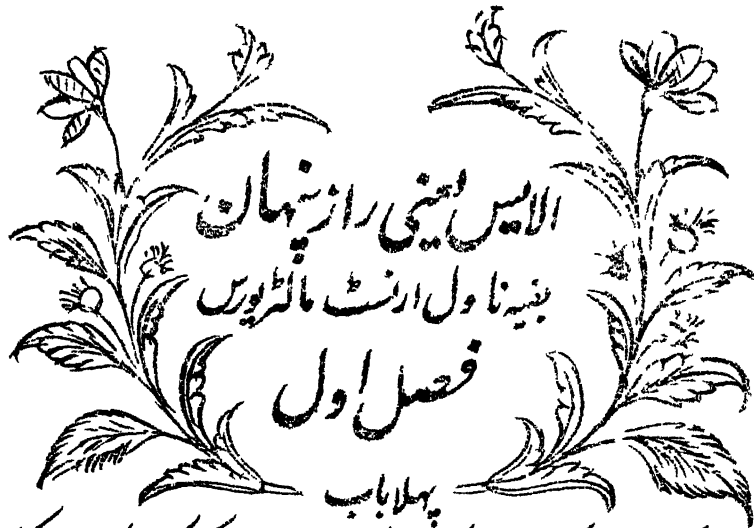 الایس یعنی راز پنہان
بقیہ ناول ارنسٹ مالٹریورس
فصل اول
پہلا باب